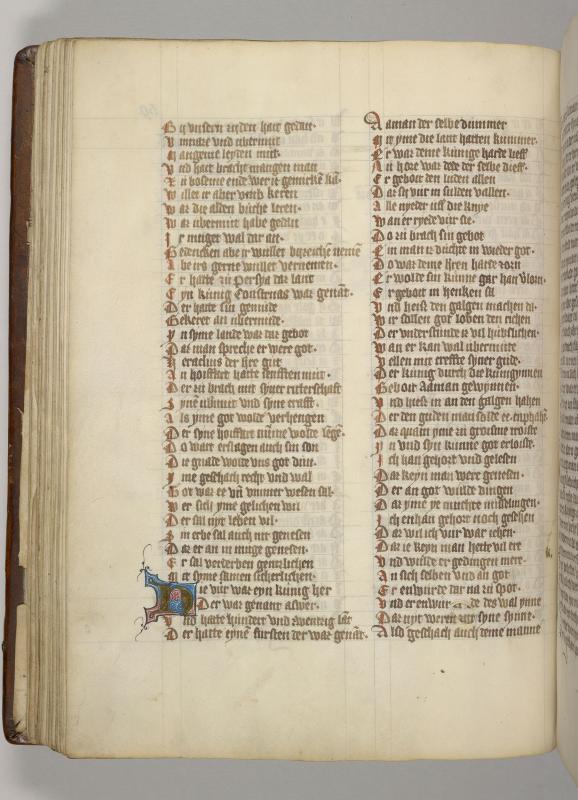 By vnsern zyden hait gedan
Vnmaze vnd vbermut
Mangeme leyden mut
Vnd hait bracht mangen man
Wil er aber vmb keren
War die alden buche leren
War vbermut habe gedan
Ir muget wal dar an
Gedencken abe ir wullet
Abe irs gerne wullet vernemen
Er hatte zu Persya dar lant
Eyn kunig Consternas was genant
Der hatte sin gemude
Gekeret an vbermude
Yn syme lande war die gebot
Dar man spreche er were got
Heraclius der here gut
An hoiffart hatte senfften mut
Der zu brach mit syner ritterschafft
Synen vbermut vnd syne crafft
Als yme got wolde verhengen
Der syne hoiffart nu me wolde
Do wart erslagen auch sin son
Die gnade wolde vns got dun
Yme geschach recht vnd wal
Got war ee vnd vmmer wesen sal
Wer sich yme gelichen wil
Der sal nye leben vil
Sin erbe sal auch nit genesen
Dar er an in muge genesen
Er sal verderben gentzlichen
Mit syme samen sicherlichen
Hie vur war eyn kunig her
Der war genant aswer
Vnd hatte hundert vnd zwentzig lant
Der hatte eynen fursten der war genant
Aaman der selbe dummer
Mit yme die lant hatten kummer
Er war deme kunige harde lieff
An hore war dede der selbe dieff
Er geboit den luden allen
Dar sie vur in sulden vallen
Alle nyeder uff die knye
Wan er ryede vur sie
Do zu brach sin gebot
Ein man ir duchte in wieder got
Do war deme hern harte zorn
Er wolde sin kunne gar han vlorn
Er geboit in henken sil
Vnd hieß den galgen machen
Wir sollen got loben den richen
Der vnderstunde ir vil hubslichen
Wan er kan wal vbermute
Vellen mit creffte syner gude
Der kunig durch die kunigynnen
Geboit Aaman gewynnen
Vnd hieß in an den galgen hahen
Der den guden man solde
Dar quam yme zu groisme troiste
Yn vnd syn kunne got erloiste
Ich han gehort vnd gelesen
Dar keyn man were genesen
Der an got wulde dingen
Dar yme ye muchte misslingen
Ich enhan gehort noch gesehen
Dar wil ich vur war iehen
Dar ie keyn man hette vil ere
Vnd wulde er gedingen mere
An sich selben vnd an got
Er enwurde dar na zu spot
Vnd er enwur de des wal ynne
Dar nyt weren syne synne
Also geschach auch deme manne